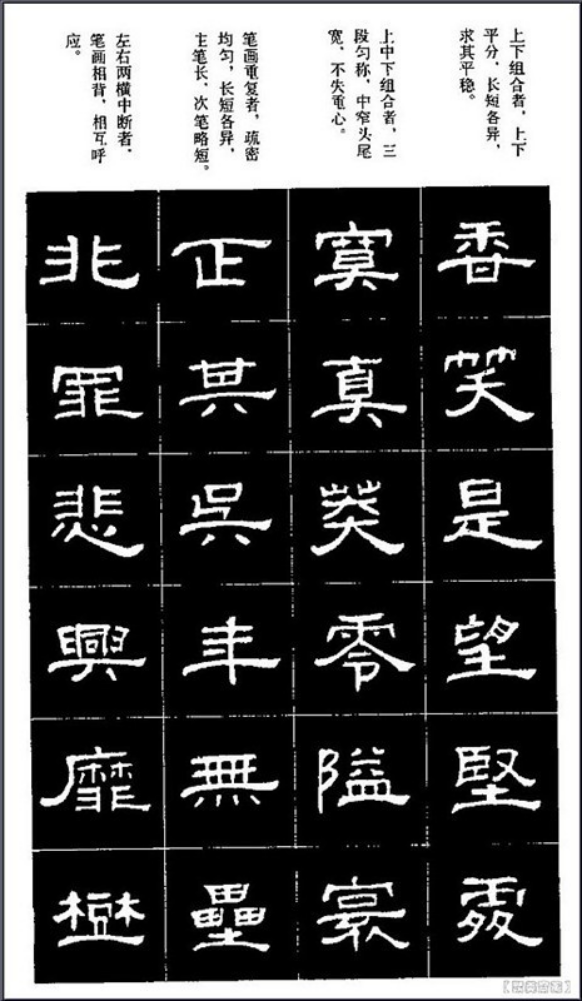 上下组合者，上下
平分，长短各异，
求其平稳。
上中下组合者，三
段匀称，中窄头尾
宽，不失重心。
笔画重复者，疏密
均匀，长短各异，
主笔长、次笔略短。
左右两横中断者，
笔画相背，相互呼
应。
香笑是望堅
寞真葵零隘
正其吳年無壘
非罪悲興靡